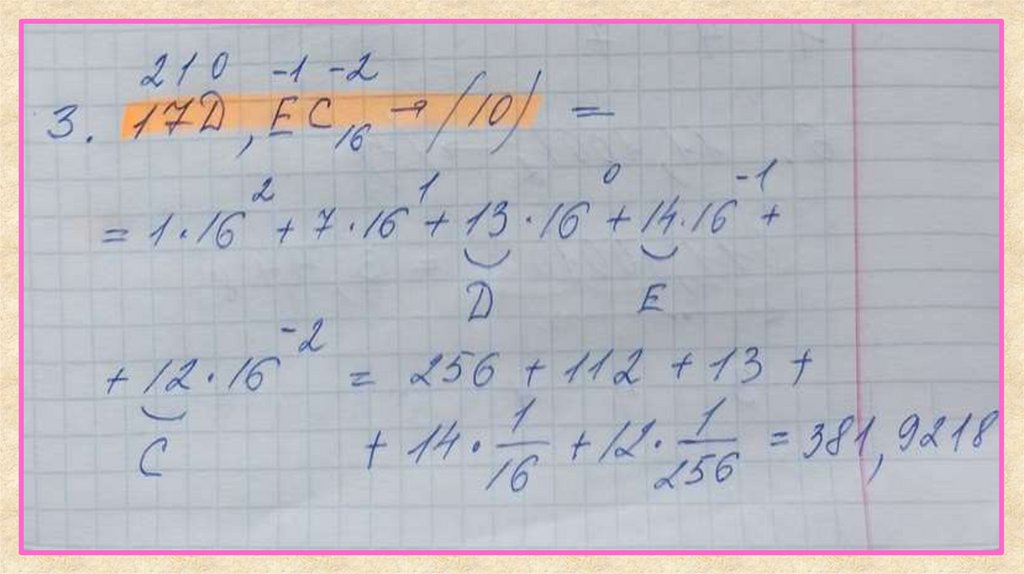 2 1 0 -1 -2
3. 17D,EC₁₆ → (10) =
= 1·16² + 7·16¹ + 13·16⁰ + 14·16⁻¹ +
D E
+ 12·16⁻² = 256 + 112 + 13 +
C + 14· 1/16 + 12· 1/256 = 381,9218